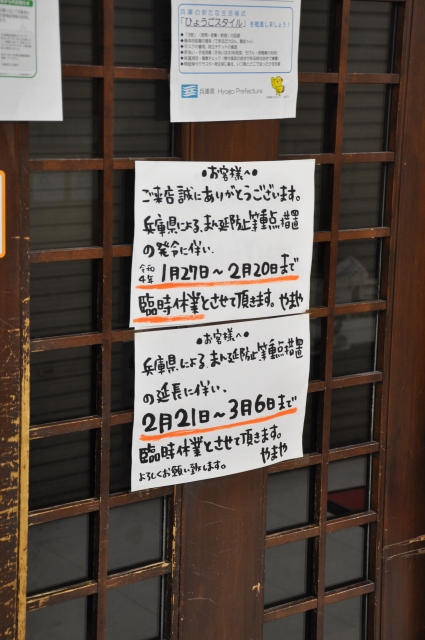 兵庫の新たな生活様式
「ひょうごスタイル」を推進しましょう!
兵庫県 Hyogo Prefecture
•お客様へ•
ご来店誠にありがとうございます。
兵庫県によるまん延防止等重点措置
の発令に伴い、
令和4年 1月27日〜2月20日まで
臨時休業とさせて頂きます。やまや
•お客様へ•
兵庫県によるまん延防止等重点措置
の延長に伴い、
2月21日〜3月6日まで
臨時休業とさせて頂きます。
よろしくお願い致します。 やまや